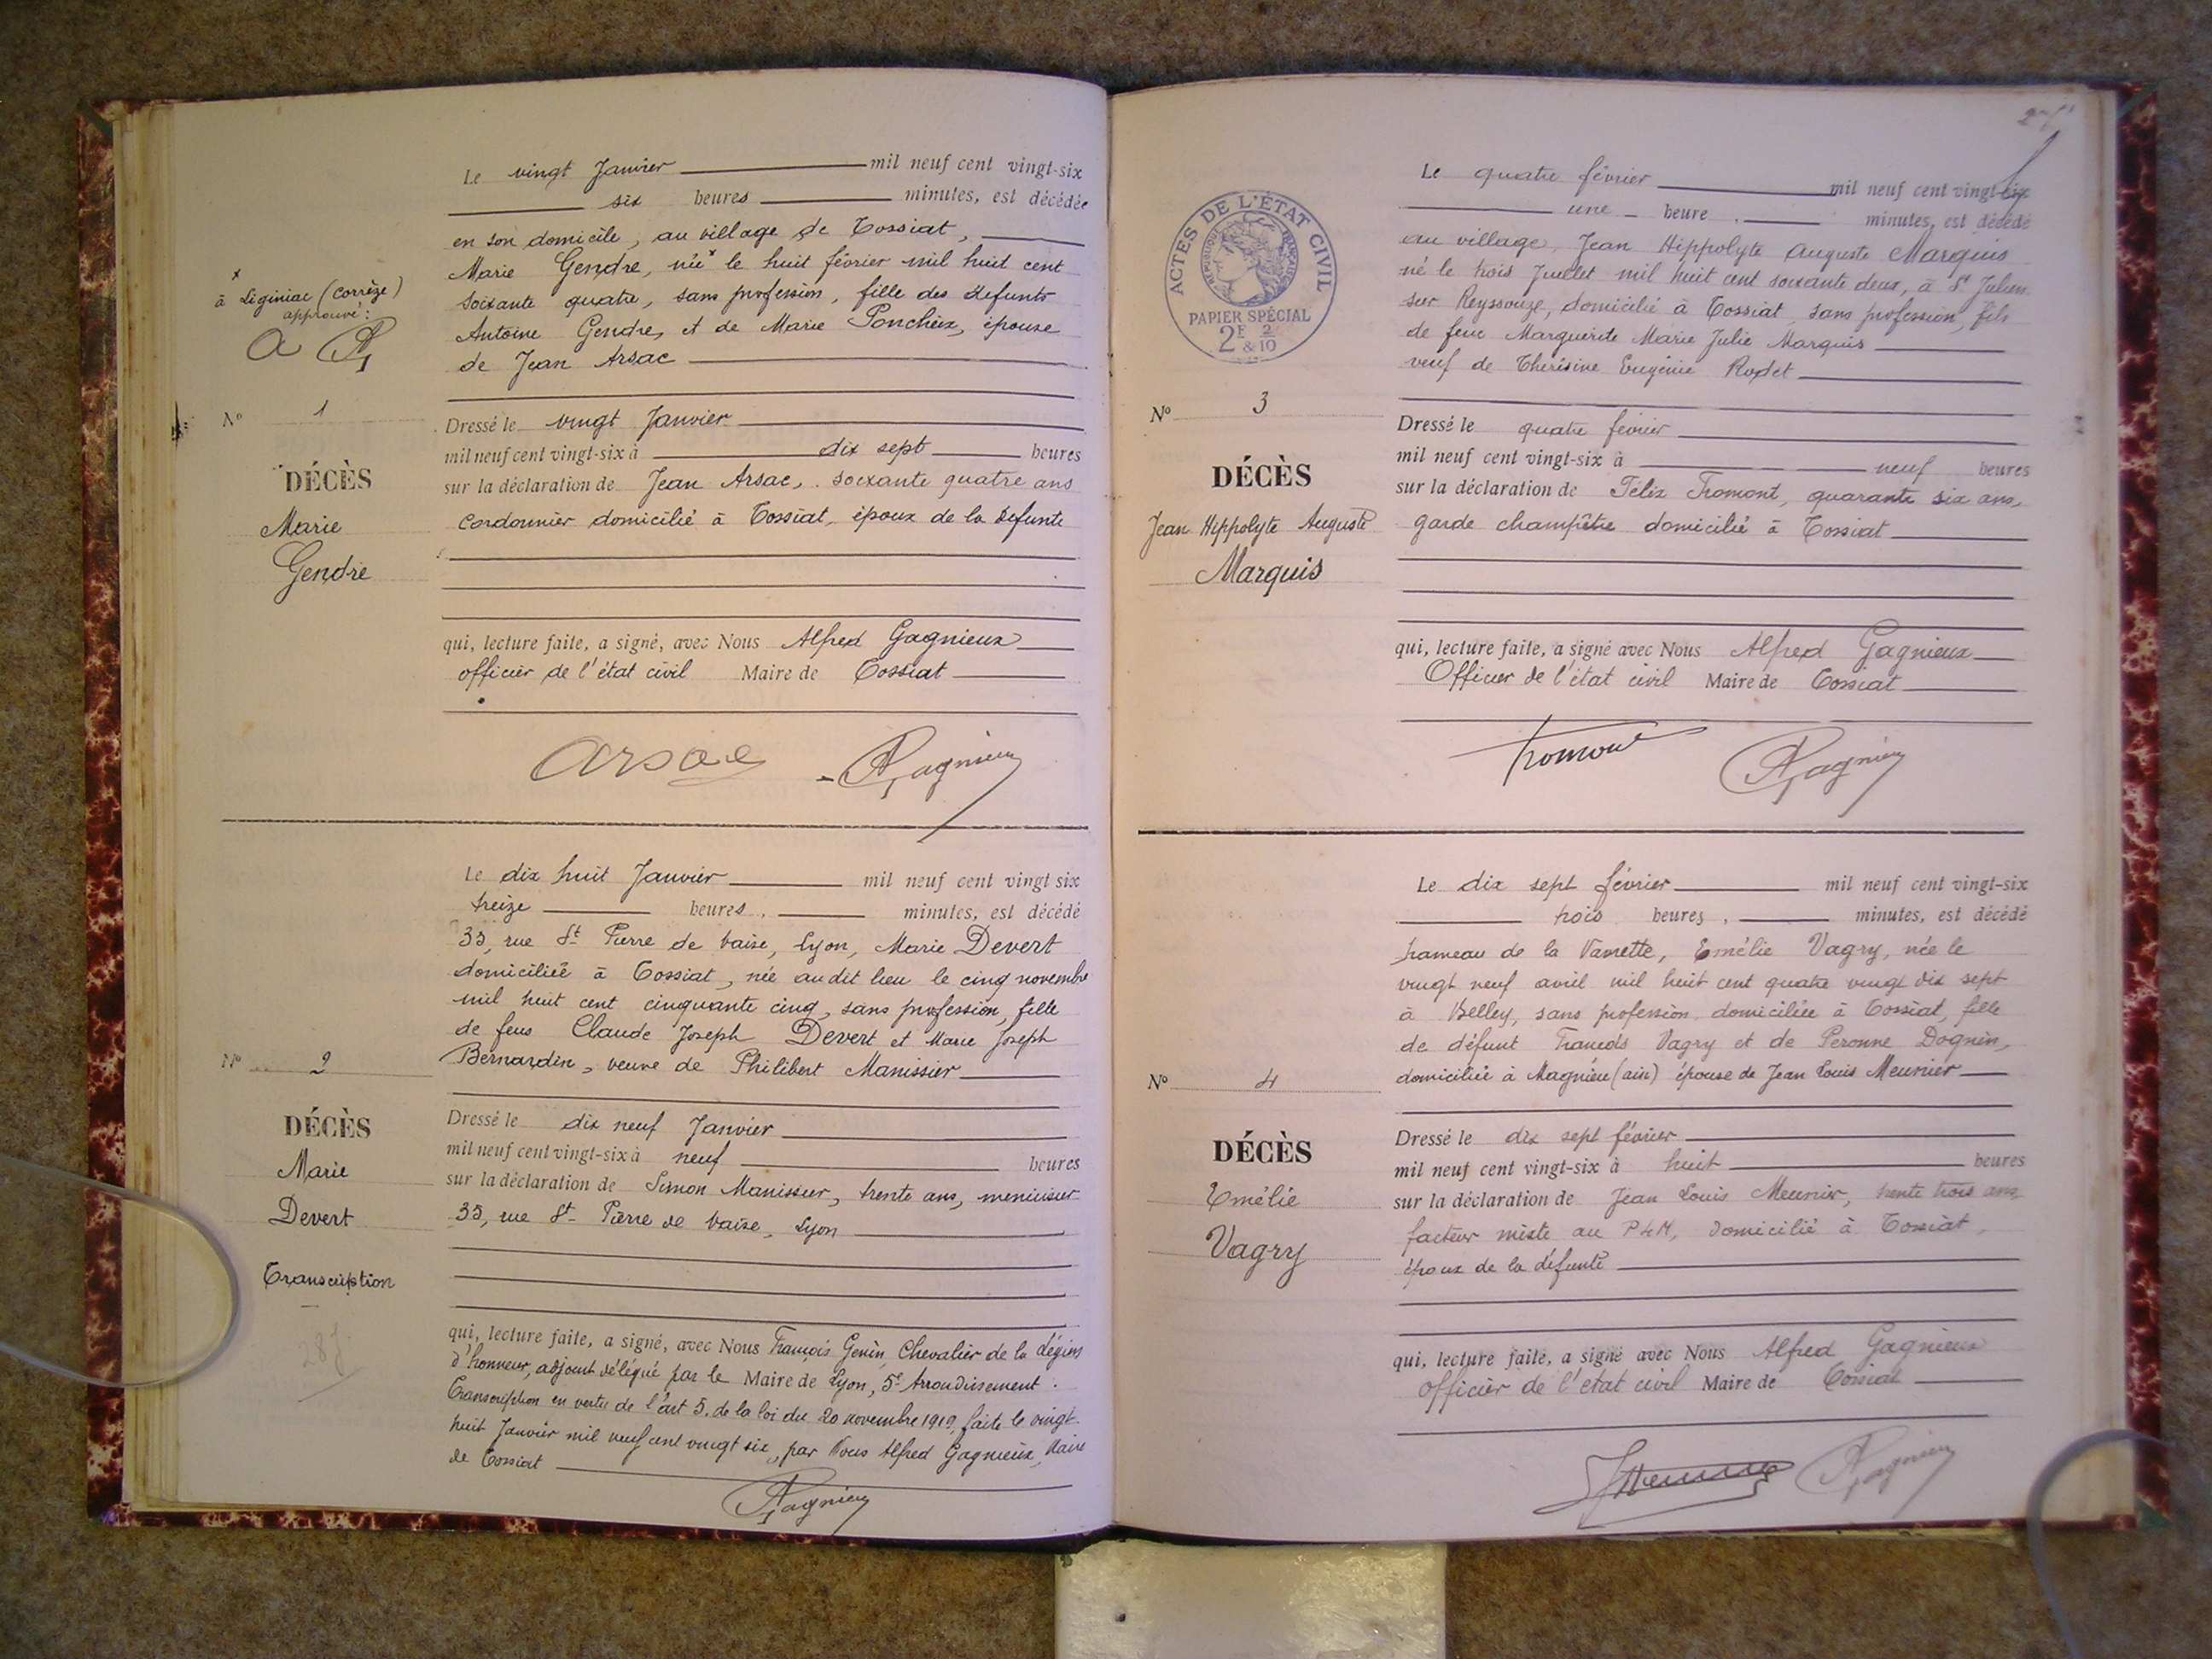 Le vingt Janvier mil neuf cent vingt-six
six heures minutes, est décédée
en son domicile, au village de Tossiat,
Marie Gendre, née x le huit février mil huit cent
soixante quatre, sans profession, fille des défunts
Antoine Gendre, et de Marie Poncheix, épouse
de Jean Arsac
x
à Liginiac (Corrèze)
approuvé :
A AG
No 1
DÉCÈS
Marie
Gendre
Dressé le vingt Janvier
mil neuf cent vingt-six à dix sept heures
sur la déclaration de Jean Arsac, soixante quatre ans
cordonnier domicilié à Tossiat, époux de la défunte
qui, lecture faite, a signé, avec Nous Alfred Gagnieux
officier de l'état civil Maire de Tossiat
Arsac AGagnieux
Le dix huit Janvier mil neuf cent vingt six
treize heures, minutes, est décédé
35, rue St Pierre de Vaise, Lyon, Marie Devert
domiciliée à Tossiat, née audit lieu le cinq novembre
mil huit cent cinquante cinq, sans profession, fille
de feus Claude Joseph Devert et Marie Joseph
Bernardin, veuve de Philibert Manissier
No 2
DÉCÈS
Marie
Devert
Transcription
Dressé le dix neuf Janvier
mil neuf cent vingt-six à neuf heures
sur la déclaration de Simon Manissier, trente ans, menuisier
35, rue St Pierre de Vaise, Lyon
qui, lecture faite, a signé, avec Nous François Genin, Chevalier de la Légion
d'honneur, adjoint délégué par le Maire de Lyon, 5e Arrondissement.
Transcription en vertu de l'art 5. de la loi du 20 novembre 1919, faite le vingt-
huit Janvier mil neuf cent vingt six, par Nous Alfred Gagnieux, Maire
de Tossiat
AGagnieux
ACTES DE L'ÉTAT CIVIL
RÉPUBLIQUE FRANÇAISE
PAPIER SPÉCIAL
2F & 2/10
Le quatre février mil neuf cent vingt-six
une heure, minutes, est décédé
au village, Jean Hippolyte Auguste Marquis
né le trois Juillet mil huit cent soixante deux, à St Julien
sur Reyssouze, domicilié à Tossiat, sans profession, fils
de feue Marguerite Marie Julie Marquis
veuf de Thérésine Eugénie Rodet
No 3
DÉCÈS
Jean Hippolyte Auguste
Marquis
Dressé le quatre février
mil neuf cent vingt-six à neuf heures
sur la déclaration de Félix Tromont, quarante six ans,
garde champêtre domicilié à Tossiat
qui, lecture faite, a signé avec Nous Alfred Gagnieux
Officier de l'état civil Maire de Tossiat
Tromont AGagnieux
Le dix sept février mil neuf cent vingt-six
trois heures, minutes, est décédé
hameau de la Vavrette, Emélie Vagry, née le
vingt neuf avril mil huit cent quatre vingt dix sept
à Belley, sans profession, domiciliée à Tossiat, fille
de défunt François Vagry et de Peronne Dognin,
domiciliée à Magnieu (ain) épouse de Jean Louis Meunier
No 4
DÉCÈS
Emélie
Vagry
Dressé le dix sept février
mil neuf cent vingt-six à huit heures
sur la déclaration de Jean Louis Meunier, trente trois ans
facteur mixte au PLM, domicilié à Tossiat,
époux de la défunte
qui, lecture faite, a signé avec Nous Alfred Gagnieux
officier de l'état civil Maire de Tossiat
JMeunier AGagnieux